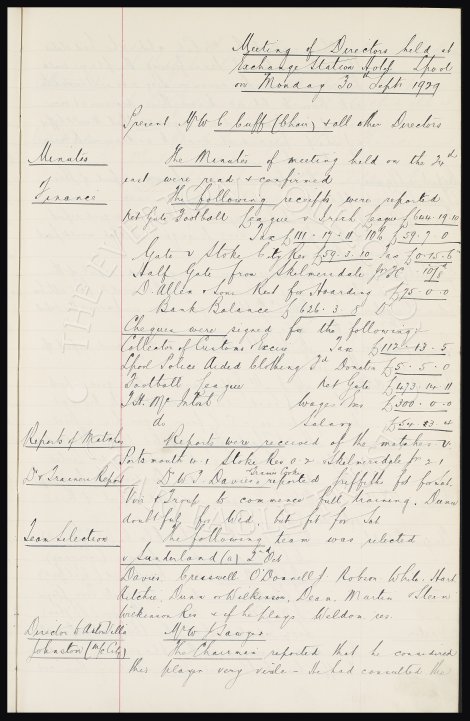 Meeting of Directors held at
Exchange Station Hotel Lpool
on Monday 30th Septr 1929
Present Mr W C Cuff (Chair) & all other Directors
Minutes
The Minutes of meeting held on the 24th
inst were read & confirmed
Finance
The following receipts were reported
Net Gate Football League v Irish League £644.19.10
Tax £111-17-11 10% £59.7.0
Gate v Stoke City Res £59.3.10 Tax £0.15.6
Half Gate from Skelmersdale
D. Allen & Sons Rent for Hoarding £75-0-0
Bank Balance £626.3.8
Cheques were signed for the following:
Collector of Customs Tax £112-13-5
Lpool Police Aided Clothing Fd Donation £5-5-0
Football League Net Gate £473.14.11
T.H. McIntosh Wages £300.0.0
do Salary
Reports of Matches
Reports were received of the matches v.
Portsmouth Stoke Res 0-2 Skelmersdale 2-1
Dr & Trainers Report
Dr W.P. Davies & Trainer Cooke reported Griffiths fit
Vos & Troup to commence full training. Dunn
doubtful for Wed. but fit for Sat
Team Selection
The following team was selected
v Sunderland (a) 2nd Oct
Davies, Cresswell O'Donnell, Robson White Hart
Ritchie, Dunn or Wilkinson, Dean, Martin & Stein
Wilkinson Res & if he plays Weldon res.
Director to Aston Villa
Mr W J Sawyer
Johnston (M/c City)
The Chairman reported that he considered
this player very — he had consulted the